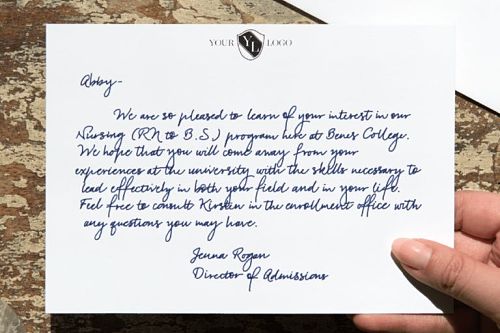 YOUR YL LOGO
Abby-
We are so pleased to learn of your interest in our
Nursing (RN to B.S.) program here at Benes College.
We hope that you will come away from your
experiences at the university with the skills necessary to
lead effectively in both your field and in your life.
Feel free to consult Kirsten in the enrollment office with
any questions you may have.
Jenna Rogen
Director of Admissions